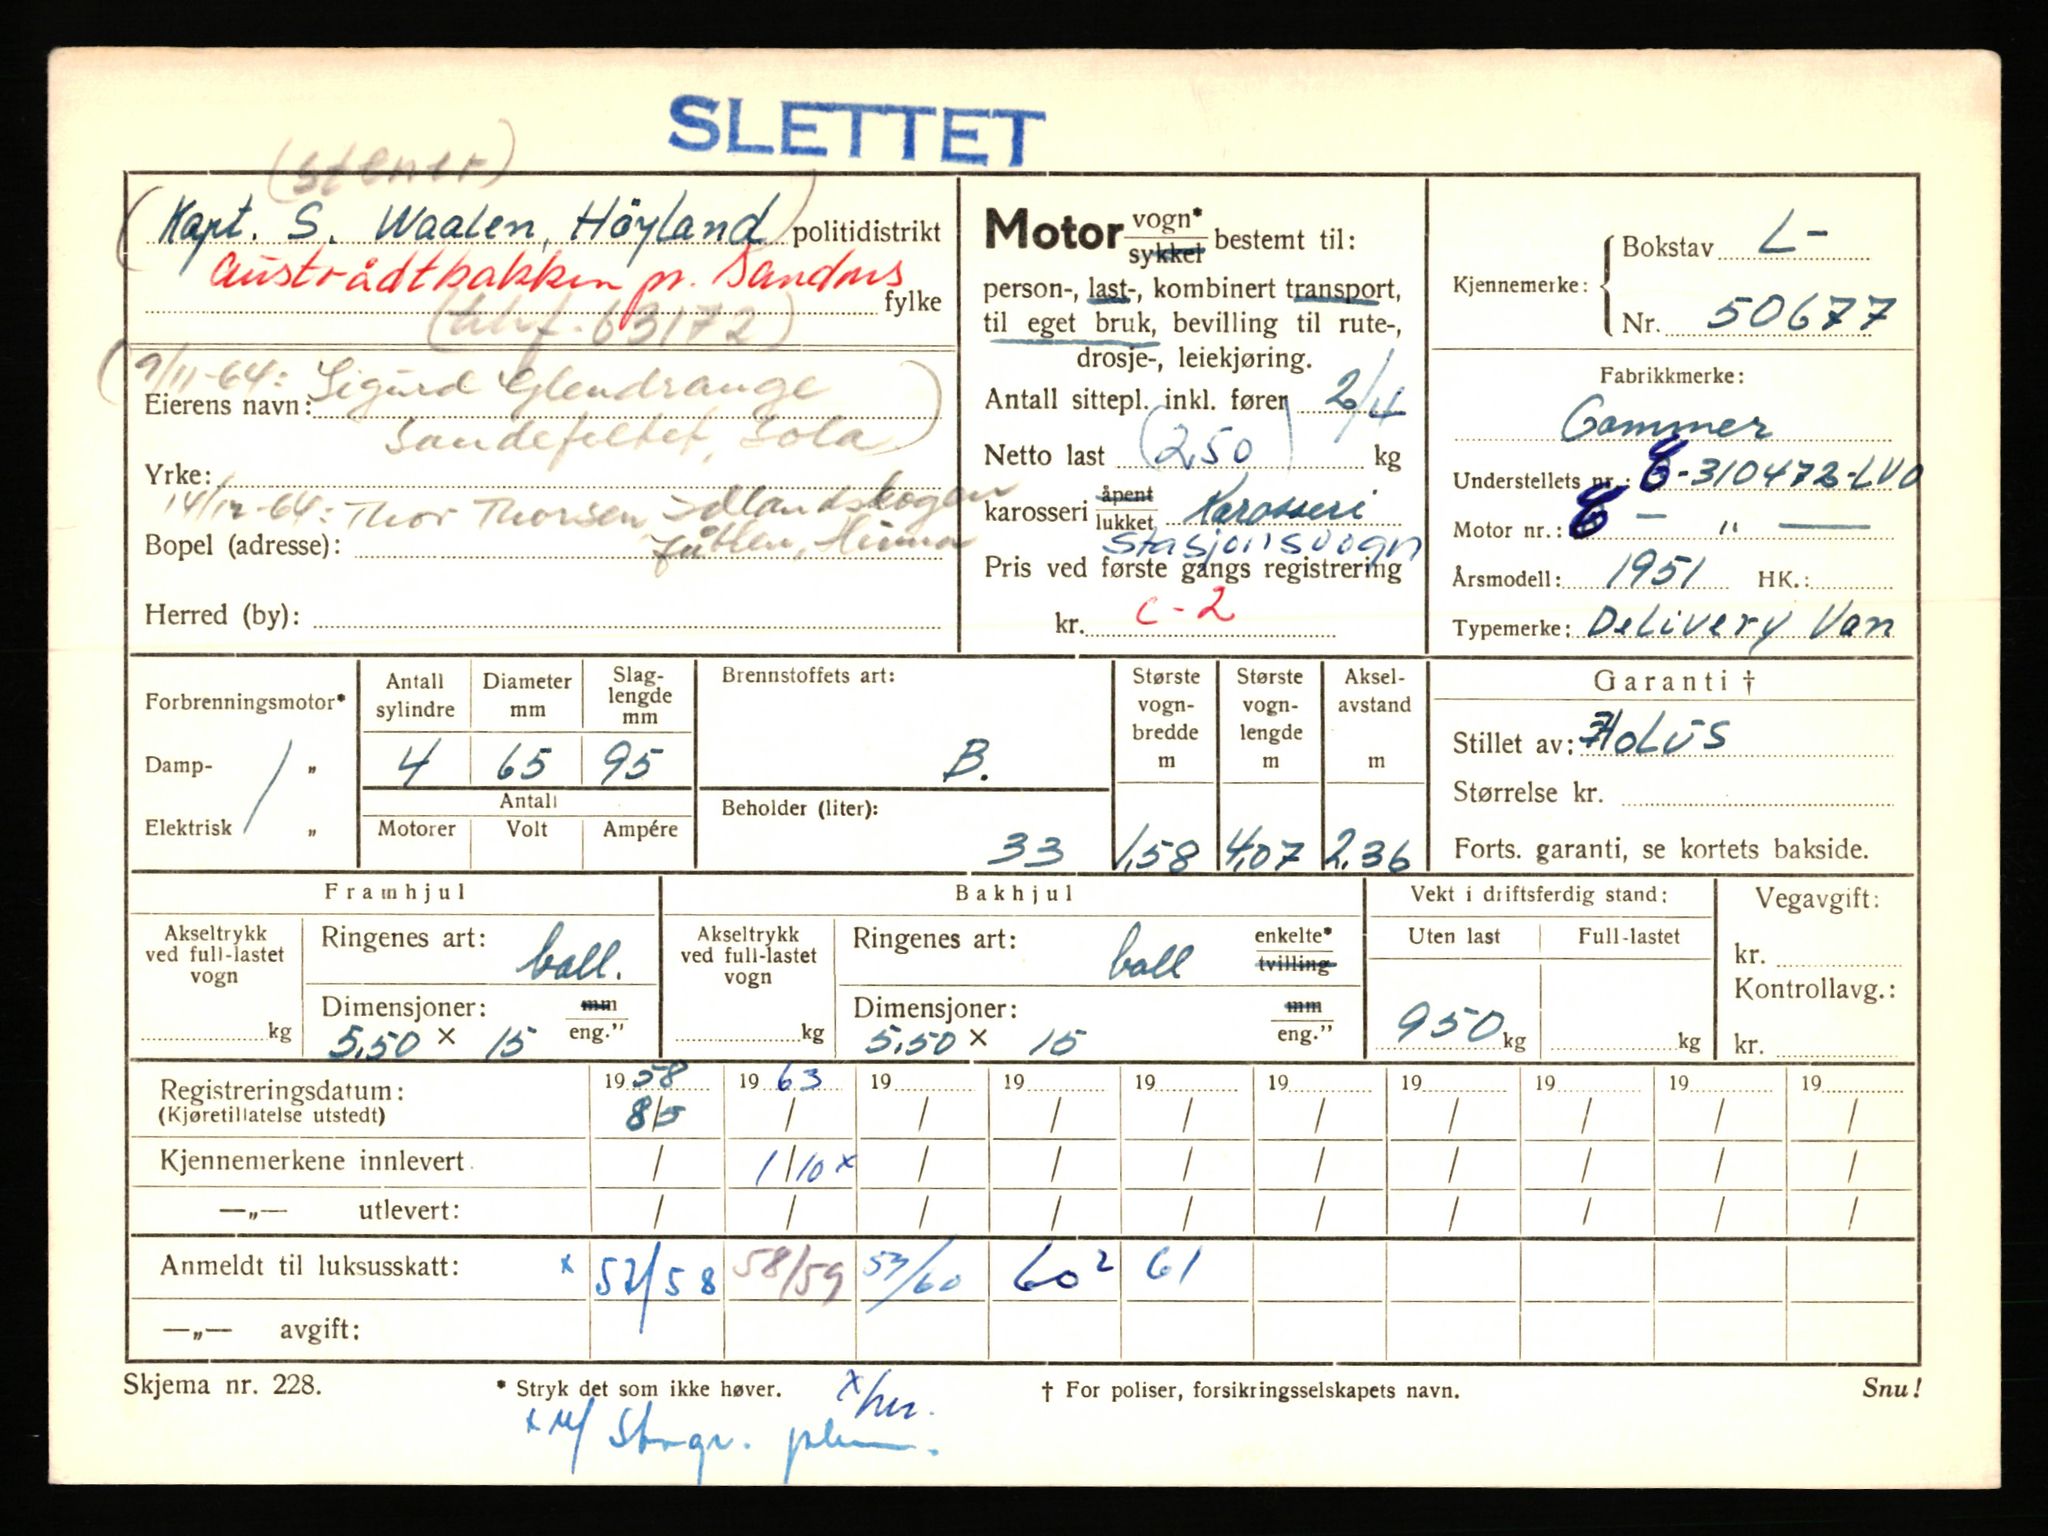 SLETTET
(Stener)
(Kapt. S. Waalen, Höyland) politidistrikt
Austrådtbakken pr. Sandnes
fylke
(tlf. 63172)
9/11-64: Sigurd Glendrange
Eierens navn:
Sandefeltet, Sola
Yrke:
14/12-64: Thor Thorsen, Idlandskogen
Bopel (adresse): Jåtten, Hinna
Herred (by):
Motor vogn* / sykkel bestemt til:
person-, last-, kombinert transport,
til eget bruk, bevilling til rute-,
drosje-, leiekjøring.
Antall sittepl. inkl. fører 2/4
Netto last (250) kg
karosseri åpent / lukket Karosseri
Stasjonsvogn
Pris ved første gangs registrering
kr. C-2
Kjennemerke: Bokstav L-
Nr. 50677
Fabrikkmerke:
Commer
Understellets nr.: E-310472-LVO
Motor nr.: E — " —
Årsmodell: 1951 HK.:
Typemerke: Delivery Van
Forbrenningsmotor*
Damp- / „
Elektrisk „
Antall sylindre 4
Diameter mm 65
Slag-lengde mm 95
Antall
Motorer Volt Ampére
Brennstoffets art:
B.
Beholder (liter):
33
Største vogn-bredde m 1,58
Største vogn-lengde m 4,07
Aksel-avstand m 2,36
Garanti †
Stillet av: Holus
Størrelse kr.
Forts. garanti, se kortets bakside.
Framhjul
Akseltrykk ved full-lastet vogn
kg
Ringenes art: ball.
Dimensjoner: mm / eng."
5,50 × 15
Bakhjul
Akseltrykk ved full-lastet vogn
kg
Ringenes art: ball enkelte* / tvilling
Dimensjoner: mm / eng."
5,50 × 15
Vekt i driftsferdig stand:
Uten last Full-lastet
950 kg kg
Vegavgift:
kr.
Kontrollavg.:
kr.
Registreringsdatum: 19 58 19 63 19 19 19 19 19 19 19 19
(Kjøretillatelse utstedt) 8/5 / / / / / / / / /
Kjennemerkene innlevert / 1/10 x / / / / / / / /
—„— utlevert: / / / / / / / / / /
Anmeldt til luksusskatt: x 57/58 58/59 59/60 60² 61
—„— avgift:
Skjema nr. 228. * Stryk det som ikke høver. † For poliser, forsikringsselskapets navn. Snu!